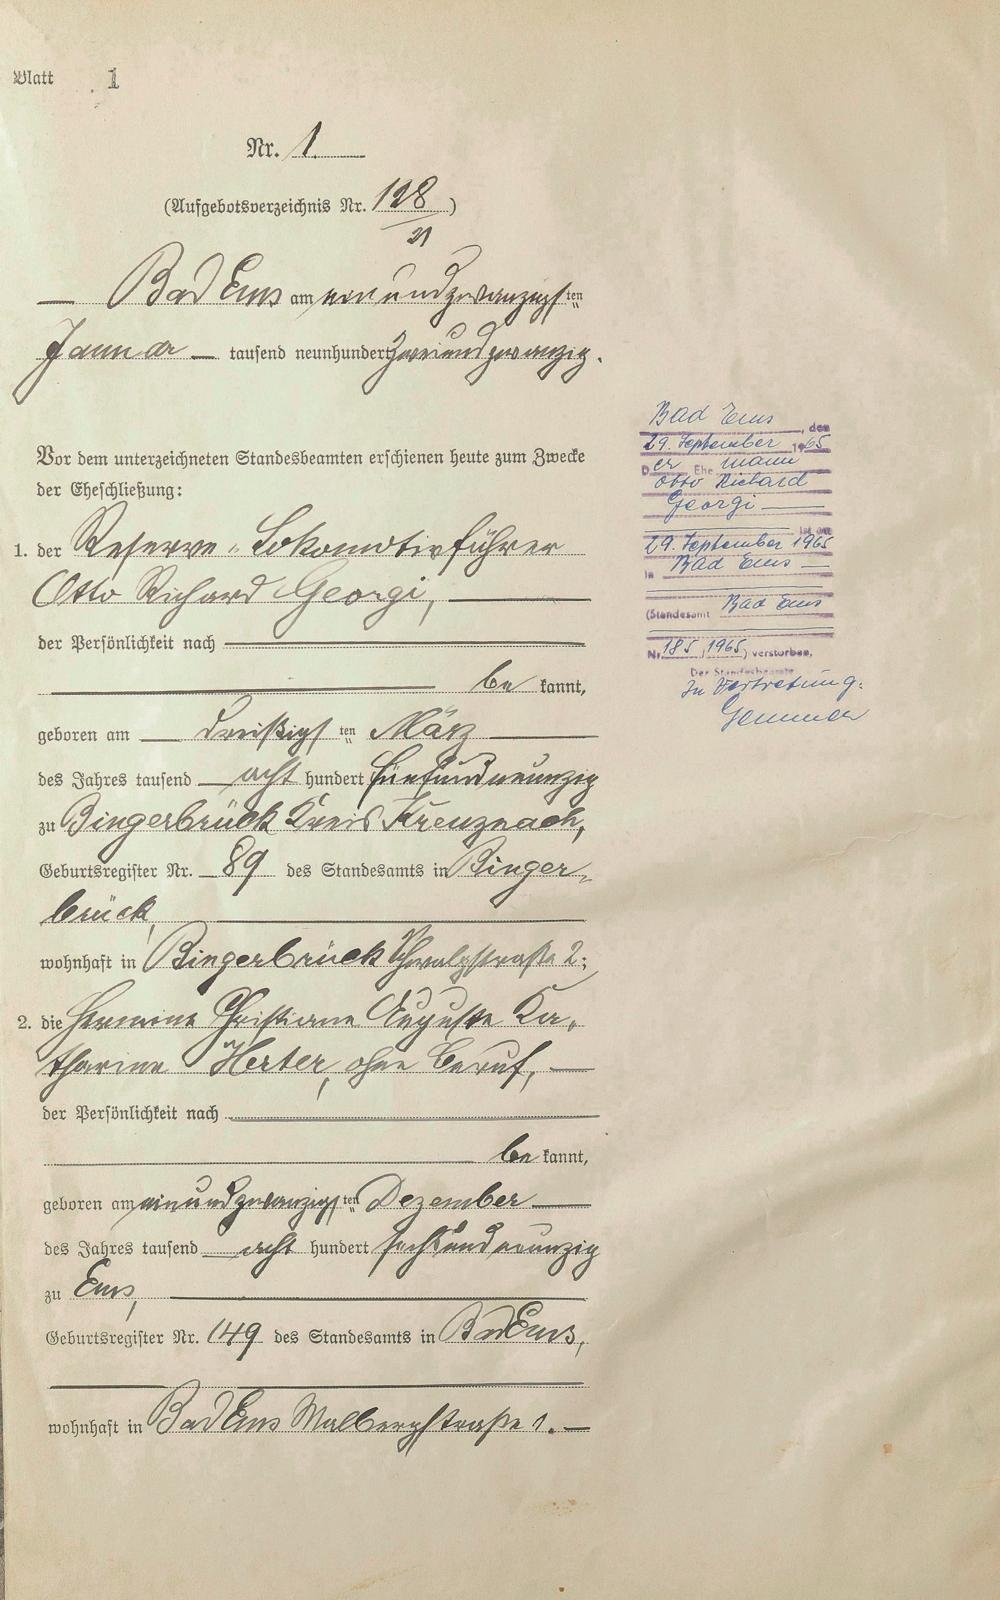 Blatt 1
Nr. 1.
(Aufgebotsverzeichnis Nr. 128
21)
Bad Ems am einundzwanzigsten
Januar tausend neunhundert zweiundzwanzig.
Vor dem unterzeichneten Standesbeamten erschienen heute zum Zwecke
der Eheschließung:
1. der Reserve-Lokomotivführer
Otto Richard Georgi,
der Persönlichkeit nach
be kannt,
geboren am dreißigsten März
des Jahres tausend acht hundert fünfundneunzig
zu Bingerbrück Kreis Kreuznach,
Geburtsregister Nr. 89 des Standesamts in Binger-
brück,
wohnhaft in Bingerbrück 2;
2. die Hermine Christiane Auguste Ka-
tharine Herter, ohne Beruf,
der Persönlichkeit nach
be kannt,
geboren am einundzwanzigsten Dezember
des Jahres tausend acht hundert sechsundneunzig
zu Ems,
Geburtsregister Nr. 149 des Standesamts in Bad Ems,
wohnhaft in Bad Ems Malbergstraße 1.
Bad Ems, den
29. September 1965
Der Ehemann
Otto Richard
Georgi
ist am
29. September 1965
in Bad Ems
(Standesamt Bad Ems
Nr. 185/1965) verstorben.
Der Standesbeamte
In Vertretung: